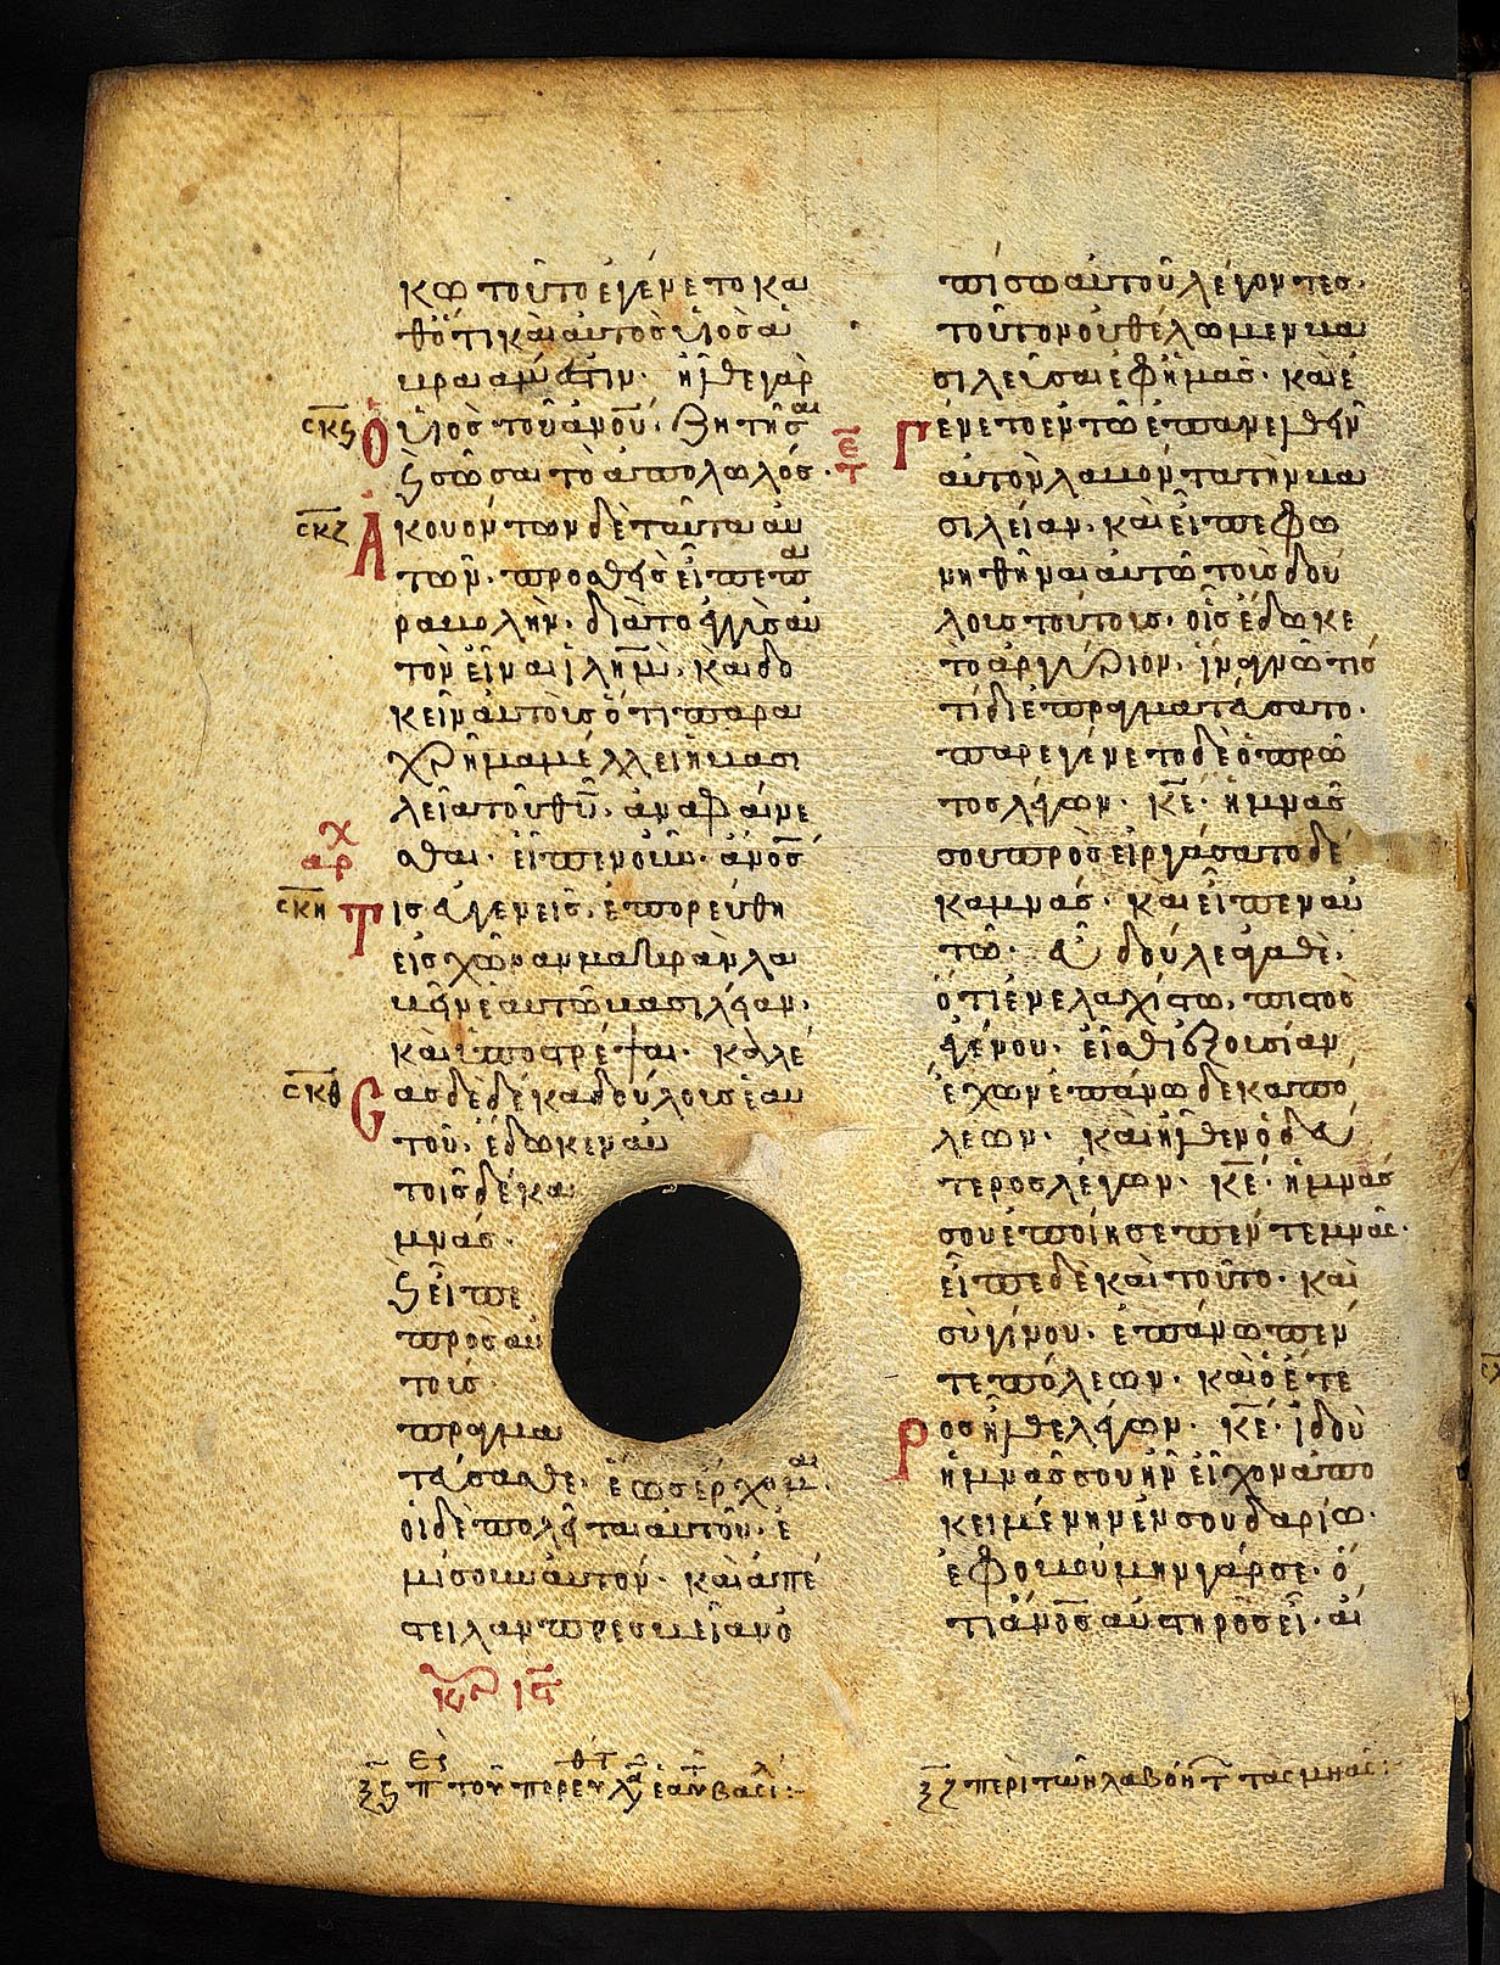 κω τοῦτο ἐγένετο κα
θότι καὶ αὐτὸς υἱὸς ἀ
βρααμ ἐστιν· ἦλθε γὰρ
σκϛ
ὁ υἱὸς τοῦ ἀνου. ζητῆσαι
ϛ σῶσαι τὸ ἀπολωλός·
ε
τ
σκζ
Ακουόντων δὲ ταῦτα αὐ
τῶν. προσθεὶς εἶπε πα
ραβολὴν. διὰ τὸ ἐγγὺς αὐ
τὸν εἶναι ἰλημ. καὶ δο
κεῖν αὐτοῖς ὅτι παρα
χρῆμα μέλλει ἡ βασι
λεία τοῦ θυ. ἀναφαίνε
χ
αρ
σθαι. εἶπεν οὖν. ἀνος
σκη
Τις εὐγενεῖς. ἐπορεύθη
εἰς χώραν μακρὰν λα
βεῖν ἑαυτῷ βασιλείαν.
καὶ ὑποστρέψαι. καλέ
σκθ
Cας δὲ δέκα δούλους ἑαυ
τοῦ. ἔδωκεν αὐ
τοῖς δέκα
μνάς.
ϛ εἶπε
πρὸς αὐ
τούς
πραγμα
τεύσασθε. ἕως ἔρχομαι.
οἱ δὲ πολῖται αὐτοῦ. ἐ
μίσουν αὐτόν. καὶ ἀπέ
στειλαν πρεσβείαν ὀ
πίσω αὐτοῦ λέγοντες.
τοῦτον οὐ θέλωμεν βα
σιλεῦσαι ἐφ ἡμᾶς. καὶ ἐ
Γένετο ἐν τῷ ἐπανελθεῖν
αὐτὸν λαβόντα τὴν βα
σιλείαν. καὶ εἶπε φω
νηθῆναι αὐτῷ τοὺς δού
λους τούτους. οἷς ἔδωκε
τὸ ἀργύριον. ἵνα γνῷ τίς
τί διεπραγματεύσατο.
παρεγένετο δὲ ὁ πρῶ
τος λέγων. κε. ἡ μνᾶς
σου προσειργάσατο δέ
κα μνάς. καὶ εἶπεν αὐ
τῷ. εὖ δοῦλε ἀγαθὲ.
ὅτι ἐν ἐλαχίστω. πιστὸς
ἐγένου. εἴσθι ἐξουσίαν
ἔχων ἐπάνω δέκα πό
λεων. καὶ ἦλθεν ὁ δεύ
τερος λέγων. κε. ἡ μνᾶς
σου ἐποίησε πέντε μνᾶς.
εἶπε δὲ καὶ τοῦτο. καὶ
σὺ γίνου. ἐπάνω πέν
τε πόλεων. καὶ ὁ ἕτε
Ρος ἦλθε λέγων. κε. ἰδοὺ
ἡ μνᾶς σου ἣν εἶχον ἀπο
κειμένην ἐν σουδαρίω.
ἐφοβούμην γάρ σε. ὅ
τι ἀνος αὐστηρὸς εἶ. αἴ
ξϛ π τοῦ πορευ ἑαυ βασι:-
ξζ περὶ τῶν λαβόντ τὰς μνᾶς:-